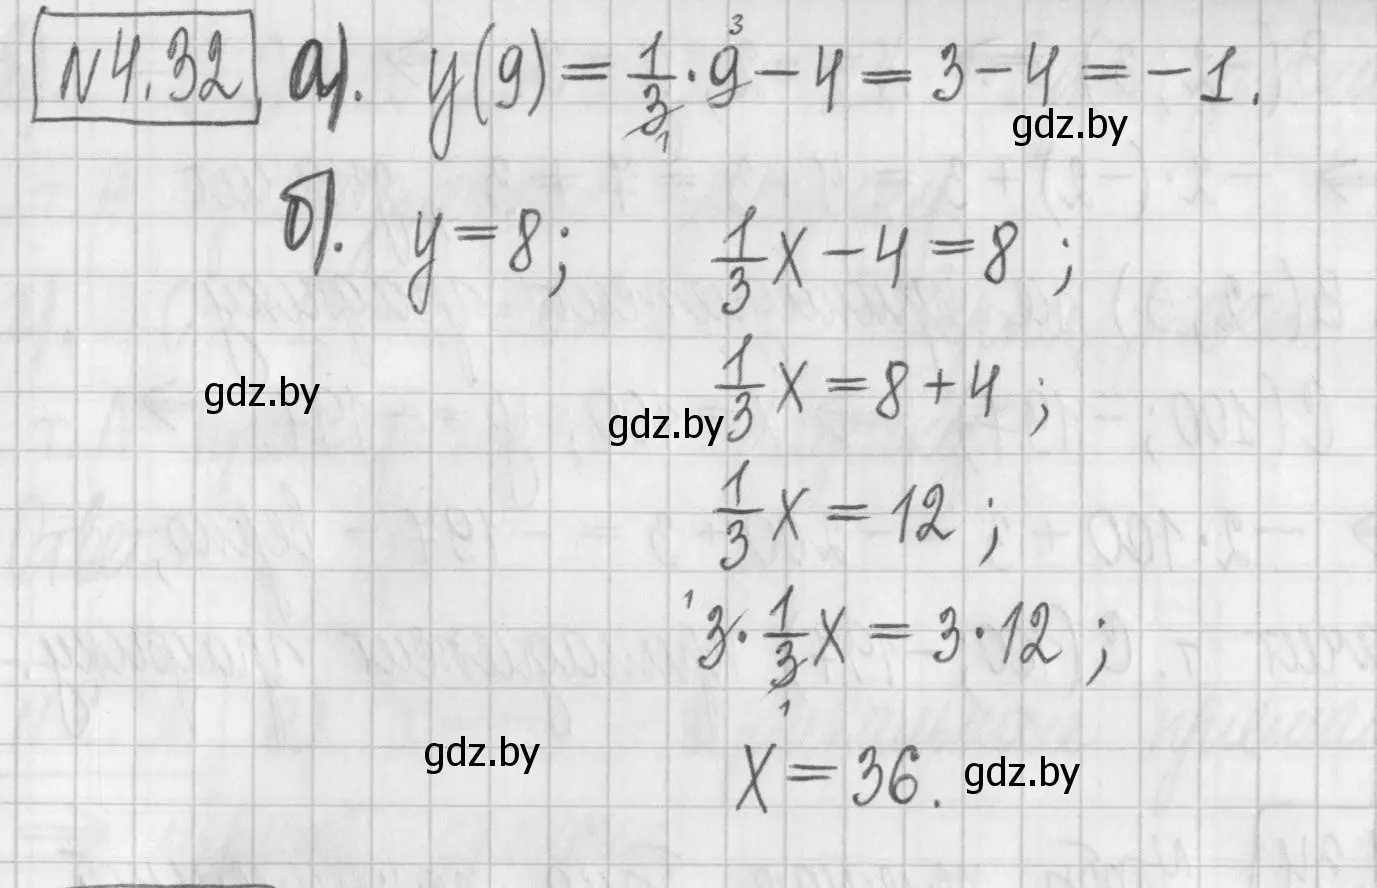 №4.32 а). y(9) = 1/3 · 9 3 1 − 4 = 3 − 4 = −1.
gdz.by
б). y = 8; 1/3 x − 4 = 8 ;
1/3 x = 8 + 4 ;
gdz.by gdz.by
1/3 x = 12 ;
1 3 · 1/3 1 x = 3 · 12 ;
gdz.by x = 36. gdz.by